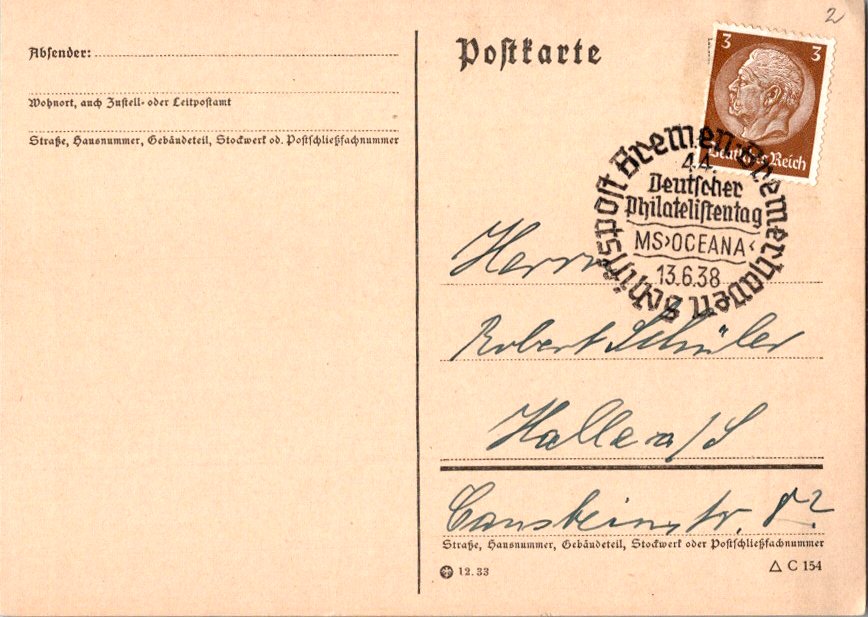 2
Absender:
Wohnort, auch Zustell- oder Leitpostamt
Straße, Hausnummer, Gebäudeteil, Stockwerk od. Postschließfachnummer
Postkarte
3 3
Deutsches Reich
Schiffspost Bremen-Bremerhaven
44.
Deutscher
Philatelistentag
MS›OCEANA‹
13.6.38
Herrn
Robert Schüler
Halle a/S
Cansteinstr.
Straße, Hausnummer, Gebäudeteil, Stockwerk oder Postschließfachnummer
12.33
△ C 154